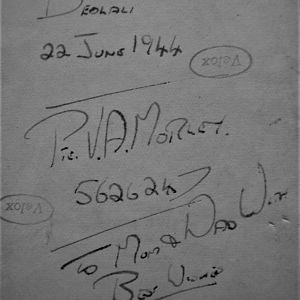 DEOLALI
22 JUNE 1944
Velox
PTE. V.A. MORLEY.
5626247
Velox
TO MUM & DAD WITH
BEST WISHES